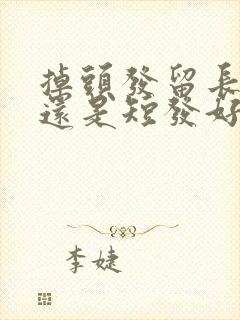 掉頭發留長
還是短發好
李婕